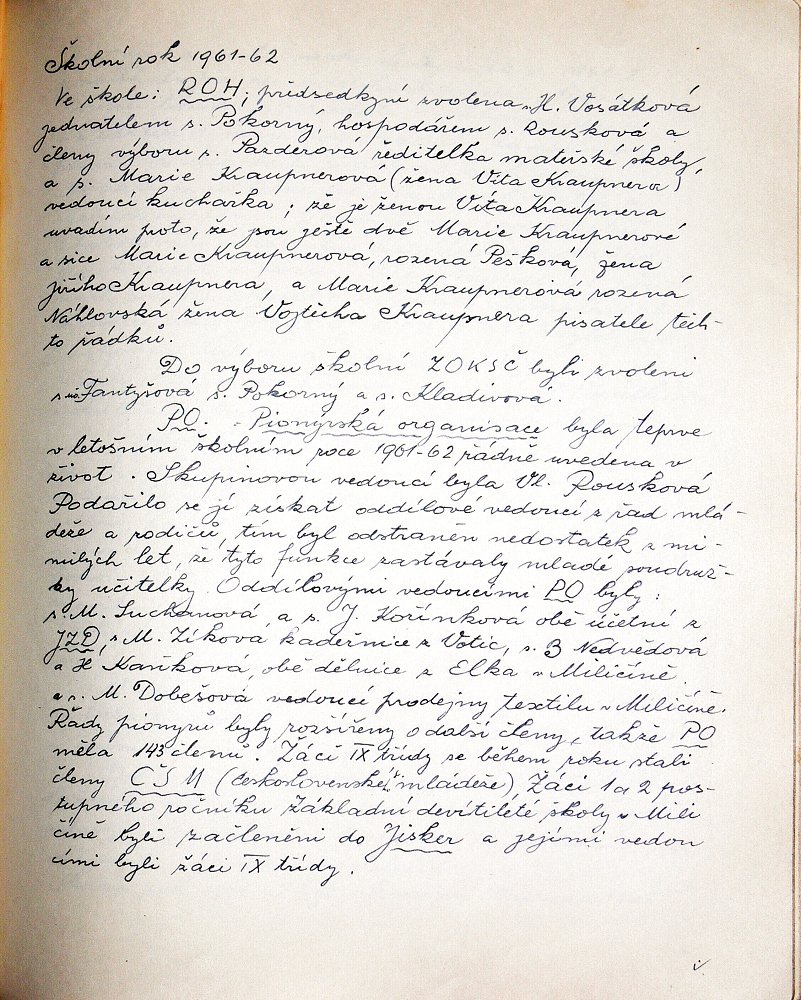 Školní rok 1961-62
Ve škole: ROH; předsedkyní zvolena s. H. Vosátková
jednatelem s. Pokorný, hospodářem s. Rousková a
členy výboru s. Pazderová ředitelka mateřské školy,
a s. Marie Kraupnerová (žena Víta Kraupnera)
vedoucí kuchařka; že je ženou Víta Kraupnera
uvádím proto, že jsou ještě dvě Marie Kraupnerové
a sice Marie Kraupnerová, rozená Pešková, žena
Jiřího Kraupnera, a Marie Kraupnerová rozená
Náhlovská žena Vojtěcha Kraupnera pisatele těch-
to řádků.
Do výboru školní ZOKSČ byli zvoleni
Fantyšová s. Pokorný a s. Kladivová.
PO. - Pionýrská organisace byla teprve
v letošním školním roce 1961-62 řádně uvedena v
život. Skupinovou vedoucí byla Vl. Rousková
Podařilo se jí získat oddílové vedoucí z řad mlá-
deže a rodičů, tím byl odstraněn nedostatek z mi-
nulých let, že tyto funkce zastávaly mladé soudruž-
ky učitelky. Oddílovými vedoucími PO byly:
s. M. Suchanová, a s. J. Kořínková obě účetní z
JZD, s M. Zíková kadeřnice z Votic, s. B Nedvědová
a H Kaňková, obě dělnice z Elka v Miličíně
a s. M. Dobešová vedoucí prodejny textilu v Miličíně.
Řády pionýrů byly rozšířeny o další členy, takže PO
měla 143 členů. Žáci IX třídy se během roku stali
členy ČSM (československé mládeže), Žáci 1 a 2 pos-
tupného ročníku Základní devítileté školy v Mili
číně byli začleněni do Jisker a jejími vedou
cími byli žáci IX třídy.